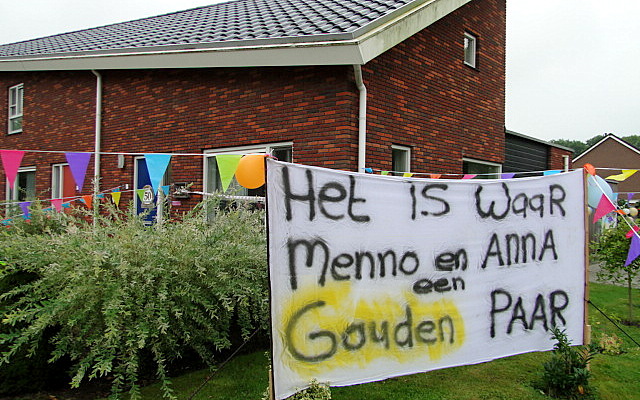 Het is waar
Menno en Anna
een
Gouden PAAR
50